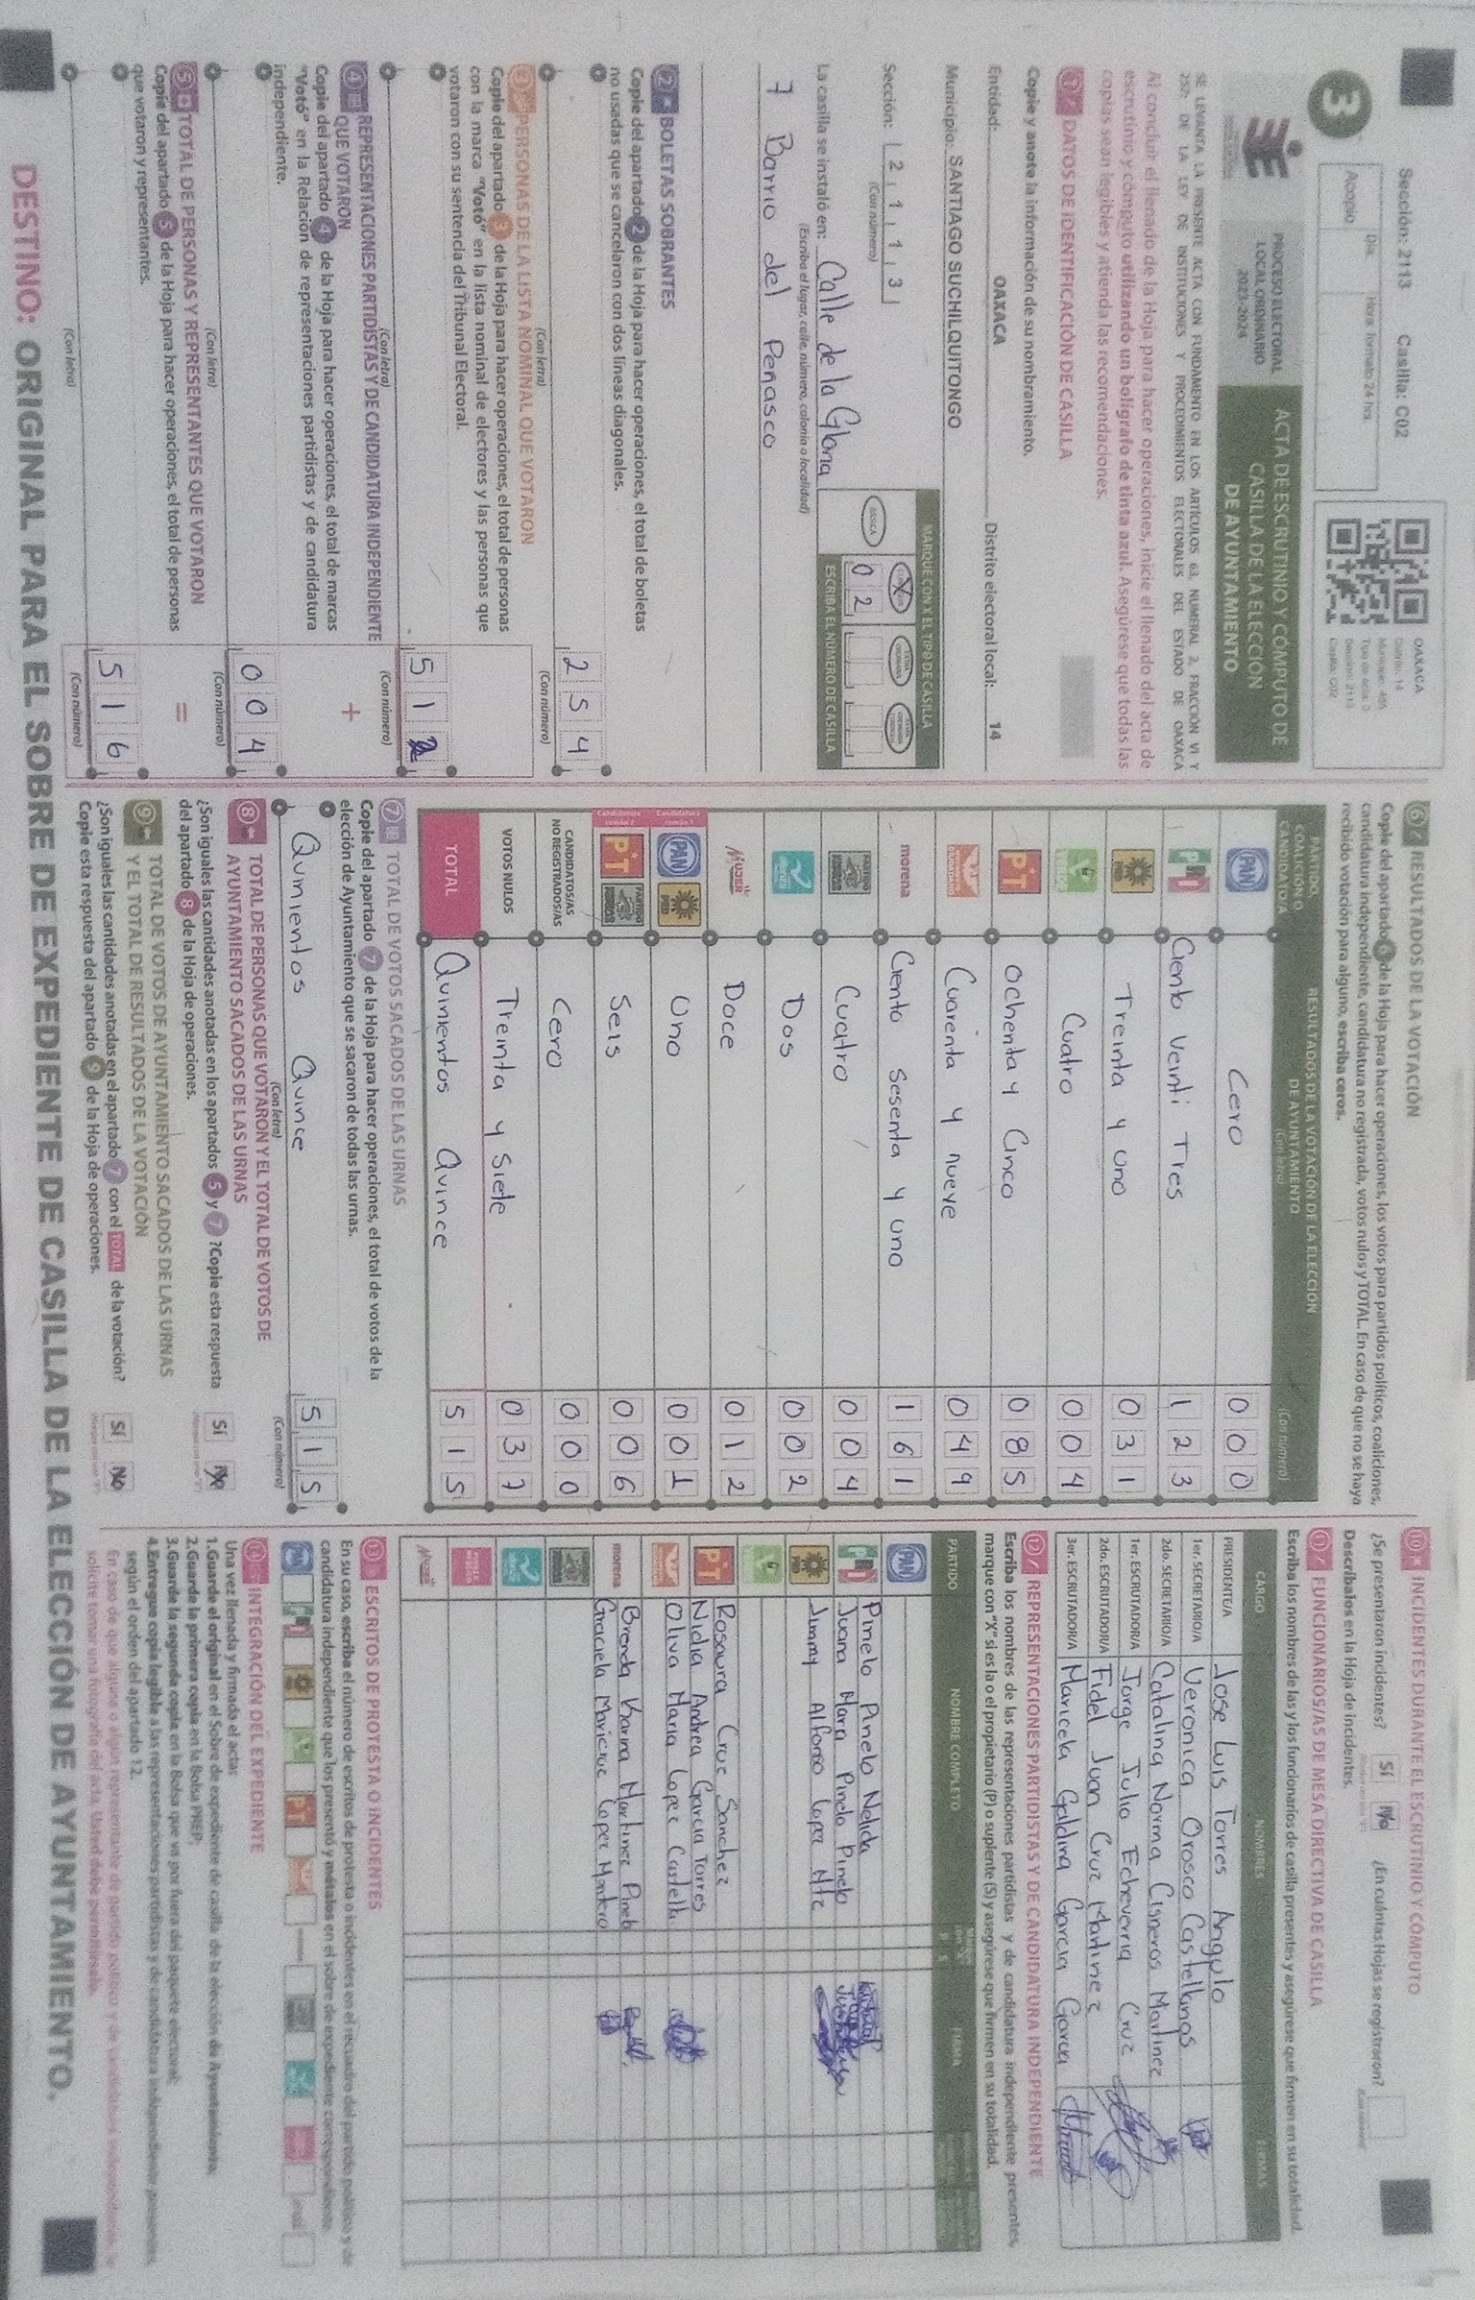 Sección: 2113 Casilla: C02
Día: Hora: Formato 24 hrs.
Acopio
3
OAXACA
Distrito: 14
Sección: 2113
Casilla: C02
PROCESO ELECTORAL
LOCAL ORDINARIO
2023-2024
ACTA DE ESCRUTINIO Y CÓMPUTO DE
CASILLA DE LA ELECCIÓN
DE AYUNTAMIENTO
SE LEVANTA LA PRESENTE ACTA CON FUNDAMENTO EN LOS ARTÍCULOS 63, NUMERAL 2, FRACCIÓN VI Y
232, DE LA LEY DE INSTITUCIONES Y PROCEDIMIENTOS ELECTORALES DEL ESTADO DE OAXACA
Al concluir el llenado de la Hoja para hacer operaciones, inicie el llenado del acta de
escrutinio y cómputo utilizando un bolígrafo de tinta azul. Asegúrese que todas las
copias sean legibles y atienda las recomendaciones.
1 DATOS DE IDENTIFICACIÓN DE CASILLA
Copie y anote la información de su nombramiento.
Entidad: OAXACA Distrito electoral local: 14
Municipio: SANTIAGO SUCHILQUITONGO
Sección: 2 1 1 3
(Con número)
MARQUE CON X EL TIPO DE CASILLA
BÁSICA
0 2
ESCRIBA EL NÚMERO DE CASILLA
La casilla se instaló en: Calle de la Gloria
(Escriba el lugar, calle, número, colonia o localidad)
7 Barrio del Peñasco
2 BOLETAS SOBRANTES
Copie del apartado 2 de la Hoja para hacer operaciones, el total de boletas
no usadas que se cancelaron con dos líneas diagonales.
2 5 4
(Con letra) (Con número)
3 PERSONAS DE LA LISTA NOMINAL QUE VOTARON
Copie del apartado 3 de la Hoja para hacer operaciones, el total de personas
con la marca "Votó" en la lista nominal de electores y las personas que
votaron con su sentencia del Tribunal Electoral.
5 1 2
(Con letra) (Con número)
4 REPRESENTACIONES PARTIDISTAS Y DE CANDIDATURA INDEPENDIENTE
QUE VOTARON
+
Copie del apartado 4 de la Hoja para hacer operaciones, el total de marcas
"Votó" en la Relación de representaciones partidistas y de candidatura
independiente.
0 0 4
(Con letra) (Con número)
5 TOTAL DE PERSONAS Y REPRESENTANTES QUE VOTARON
=
Copie del apartado 5 de la Hoja para hacer operaciones, el total de personas
que votaron y representantes.
5 1 6
(Con letra) (Con número)
6 RESULTADOS DE LA VOTACIÓN
Copie del apartado 6 de la Hoja para hacer operaciones, los votos para partidos políticos, coaliciones,
candidatura independiente, candidatura no registrada, votos nulos y TOTAL. En caso de que no se haya
recibido votación para alguno, escriba ceros.
PARTIDO,
COALICIÓN O
CANDIDATO/A
RESULTADOS DE LA VOTACIÓN DE LA ELECCIÓN
DE AYUNTAMIENTO
(Con letra) (Con número)
PAN Cero 0 0 0
PRI Ciento Veinti Tres 1 2 3
PRD Treinta y uno 0 3 1
Cuatro 0 0 4
PT Ochenta y Cinco 0 8 5
Cuarenta y nueve 0 4 9
morena Ciento Sesenta y uno 1 6 1
Cuatro 0 0 4
Dos 0 0 2
MUJER Doce 0 1 2
PAN PRD Uno 0 0 1
PT Seis 0 0 6
CANDIDATOS/AS
NO REGISTRADOS/AS Cero 0 0 0
VOTOS NULOS Treinta y Siete 0 3 7
TOTAL Quinientos Quince 5 1 5
7 TOTAL DE VOTOS SACADOS DE LAS URNAS
Copie del apartado 7 de la Hoja para hacer operaciones, el total de votos de la
elección de Ayuntamiento que se sacaron de todas las urnas.
Quinientos Quince 5 1 5
(Con letra) (Con número)
8 TOTAL DE PERSONAS QUE VOTARON Y EL TOTAL DE VOTOS DE
AYUNTAMIENTO SACADOS DE LAS URNAS
¿Son iguales las cantidades anotadas en los apartados 5 y 7 ? Copie esta respuesta
del apartado 8 de la Hoja de operaciones.
Sí No
9 TOTAL DE VOTOS DE AYUNTAMIENTO SACADOS DE LAS URNAS
Y EL TOTAL DE RESULTADOS DE LA VOTACIÓN
¿Son iguales las cantidades anotadas en el apartado 7 con el TOTAL de la votación?
Copie esta respuesta del apartado 9 de la Hoja de operaciones.
Sí No
10 INCIDENTES DURANTE EL ESCRUTINIO Y CÓMPUTO
¿Se presentaron incidentes? Sí No ¿En cuántas Hojas se registraron?
Descríbalos en la Hoja de incidentes.
11 FUNCIONARIOS/AS DE MESA DIRECTIVA DE CASILLA
Escriba los nombres de las y los funcionarios de casilla presentes y asegúrese que firmen en su totalidad.
CARGO NOMBRES FIRMAS
PRESIDENTE/A Jose Luis Torres Angulo
1er. SECRETARIO/A Veronica Orosco Castellanos
2do. SECRETARIO/A Catalina Norma Cisneros Martinez
1er. ESCRUTADOR/A Jorge Julio Echeverria Cruz
2do. ESCRUTADOR/A Fidel Juan Cruz Martinez
3er. ESCRUTADOR/A Maricela Galdina Garcia Garcia
12 REPRESENTACIONES PARTIDISTAS Y DE CANDIDATURA INDEPENDIENTE
Escriba los nombres de las representaciones partidistas y de candidatura independiente presentes,
marque con "X" si es la o el propietario (P) o suplente (S) y asegúrese que firmen en su totalidad.
PARTIDO NOMBRE COMPLETO P S FIRMA
PAN
PRI Pinelo Pinelo Nelida
Juana Mara Pinelo Pinelo
PRD Jimmy Alfonso Lopez Htz
PT Rosaura Cruz Sanchez
Nidia Andrea Garcia Torres
Oliva Maria Lopez Castell.
morena Brenda Karina Martinez Pinelo
Graciela Maricruz Lopez Montero
13 ESCRITOS DE PROTESTA O INCIDENTES
En su caso, escriba el número de escritos de protesta o incidentes en el recuadro del partido político y de
candidatura independiente que los presentó y métalos en el sobre de expediente correspondiente.
14 INTEGRACIÓN DEL EXPEDIENTE
Una vez llenada y firmada el acta:
1.Guarde el original en el Sobre de expediente de casilla de la elección de Ayuntamiento;
2.Guarde la primera copia en la Bolsa PREP;
3.Guarde la segunda copia en la Bolsa que va por fuera del paquete electoral;
4.Entregue copia legible a las representaciones partidistas y de candidatura independiente presentes,
según el orden del apartado 12.
En caso de que alguna o algún representante de partido político y de candidatura independiente le
solicite tomar una fotografía del acta, Usted debe permitírselo.
DESTINO: ORIGINAL PARA EL SOBRE DE EXPEDIENTE DE CASILLA DE LA ELECCIÓN DE AYUNTAMIENTO.